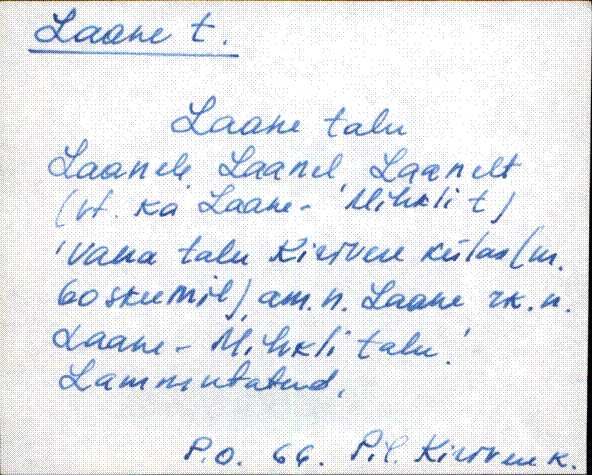 Laane t.
Laane talu
Laanele, Laanel, Laanelt
(vt. ka Laane-Mihkli t)
'Vana talu Kirivere külas (m.
60 skeemil) am. n. Laane rk. n.
Laane-Mihkli talu.'
Lammutatud.
P.O. 66. Pil. Kirivere k.